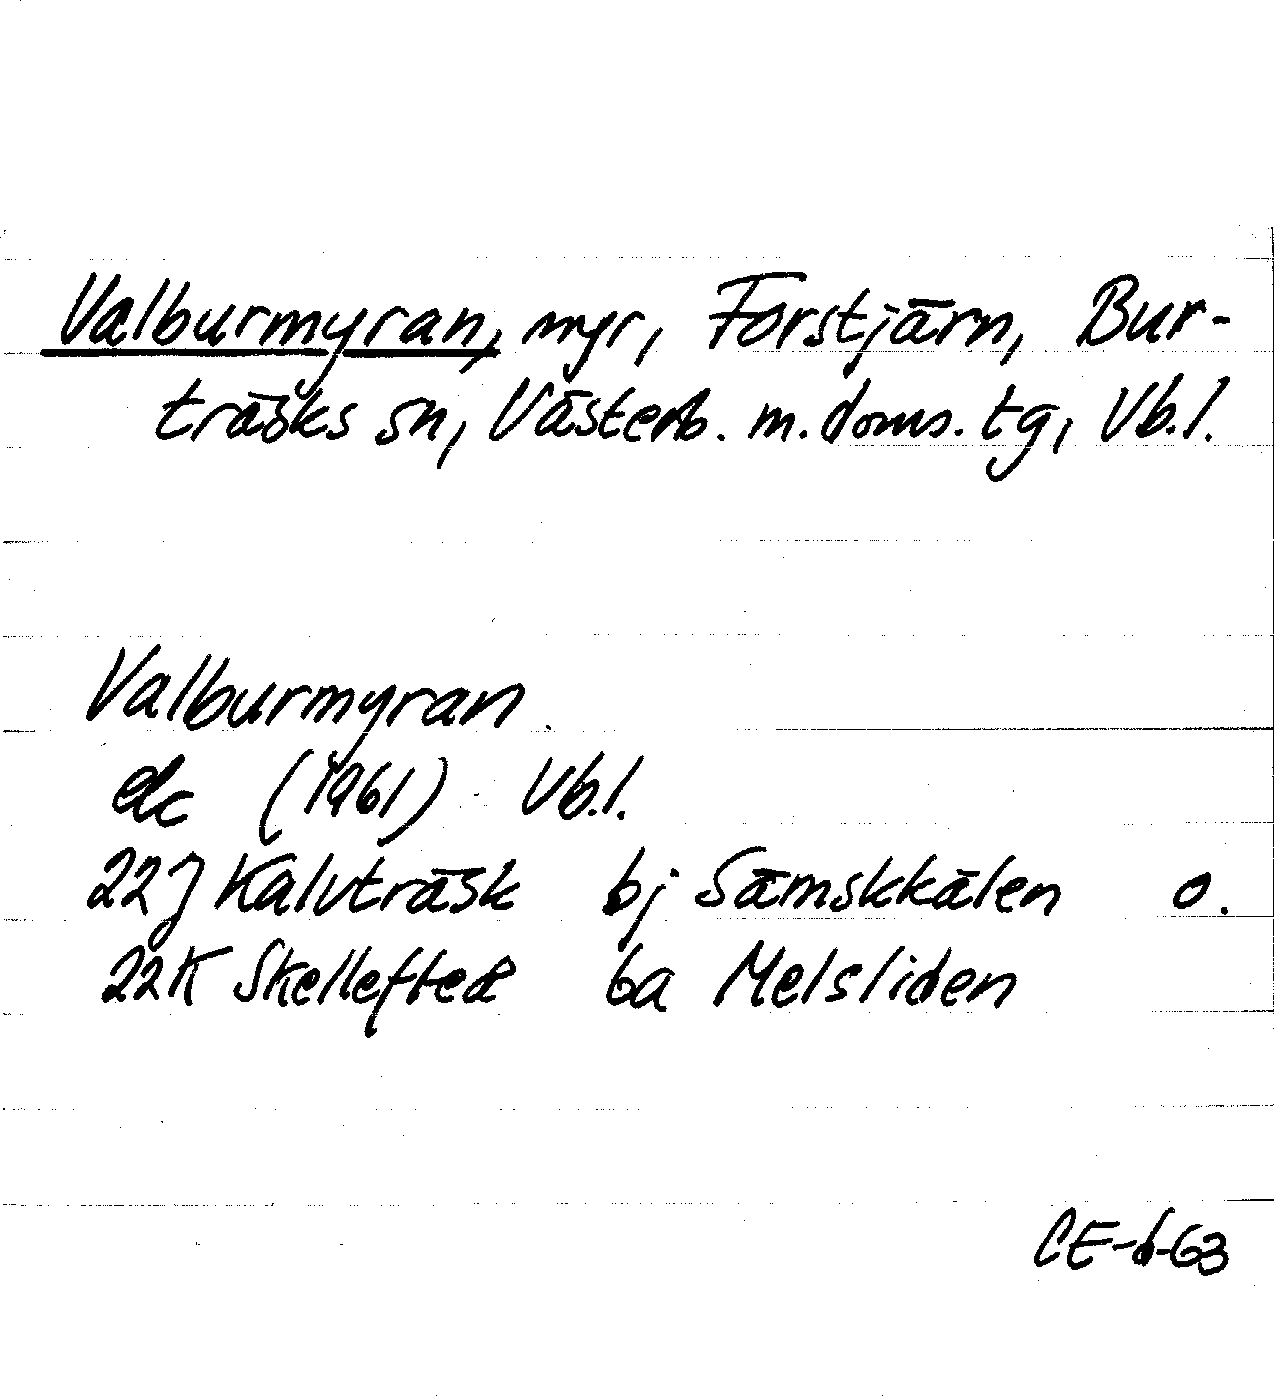 Valburmyran, myr, Forstjärn, Bur-
träsks sn, Västerb. m. doms. tg, Vb.l.
Valburmyran
ek (1961) Vb.l.
22J Kalvträsk bj Sämskkålen o.
22K Skellefteå ba Melsliden
CE-6-63